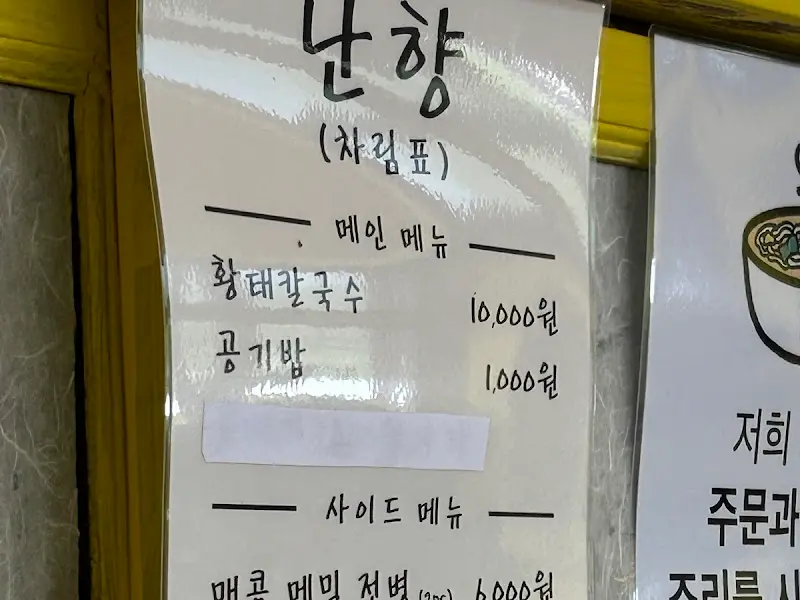 난향
(차림표)
메인 메뉴
황태칼국수 10,000원
공기밥 1,000원
사이드 메뉴
매콤 메밀 전병 6,000원
저희
주문과
조리를